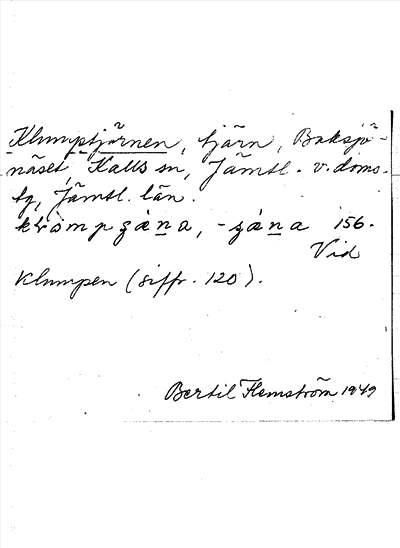 Klumptjärnen, tjärn, Baksjö-
näset, Kalls sn, Jämtl. v. doms.
fg, Jämtl. län.
156.
Vid
Klumpen (siffr. 120).
Bertil Flemström 1949